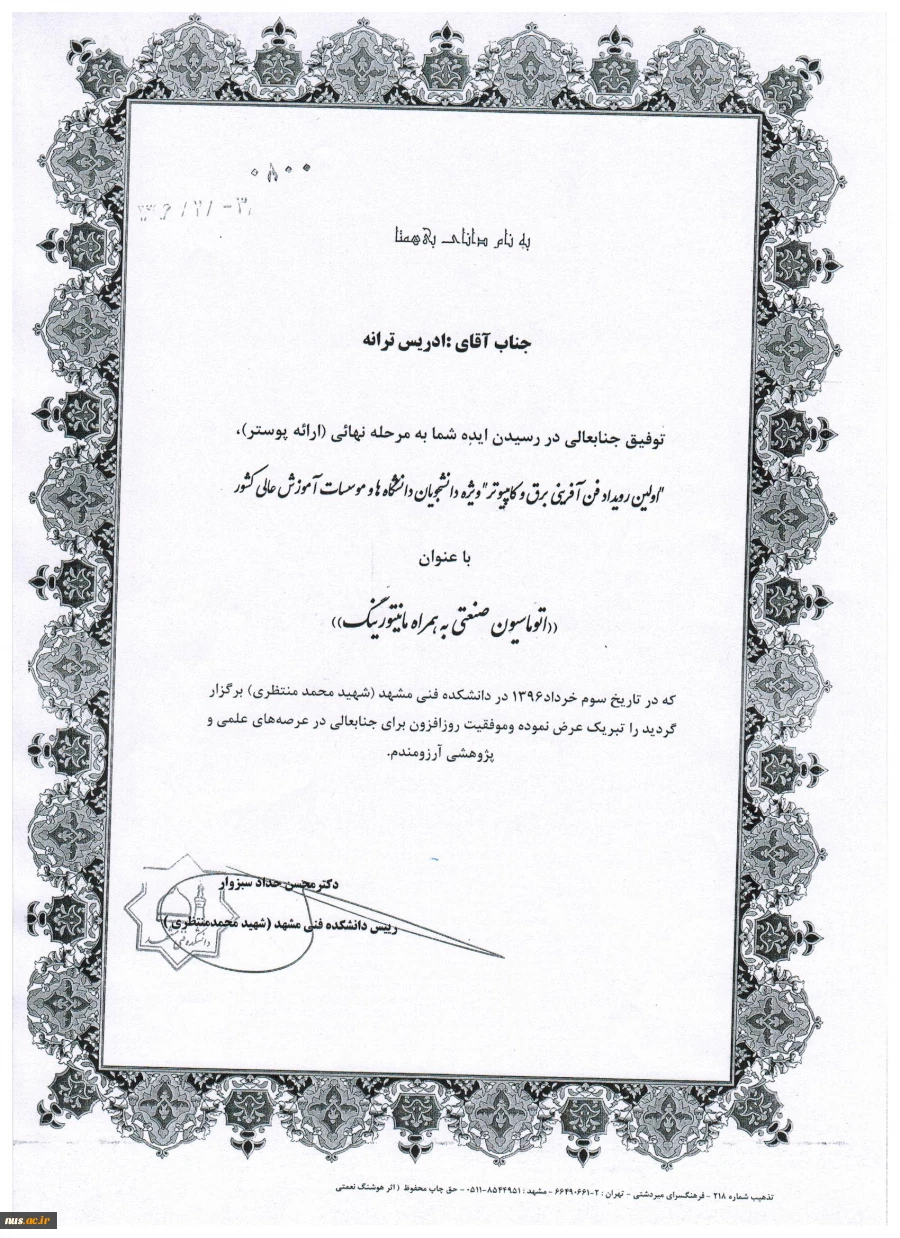 ۰۸۰۰
به نام دانای بی‌همتا
جناب آقای :ادریس ترانه
توفیق جنابعالی در رسیدن ایده شما به مرحله نهائی (ارائه پوستر)،
"اولین رویداد فن آفرینی برق و کامپیوتر" ویژه دانشجویان دانشگاه ها و موسسات آموزش عالی کشور
با عنوان
((اتوماسیون صنعتی به همراه مانیتورینگ))
که در تاریخ سوم خرداد۱۳۹۶ در دانشکده فنی مشهد (شهید محمد منتظری) برگزار
گردید را تبریک عرض نموده وموفقیت روزافزون برای جنابعالی در عرصه‌های علمی و
پژوهشی آرزومندم.
دکتر محسن حداد سبزوار
رییس دانشکده فنی مشهد (شهید محمدمنتظری )
دانشکده فنی
تذهیب شماره ۲۱۸ - فرهنگسرای میردشتی - تهران : ۲-۶۶۴۹۰۶۶۱ - مشهد : ۸۵۴۴۹۵۱-۰۵۱۱ - حق چاپ محفوظ ( اثر هوشنگ نعمتی
nus.ac.ir